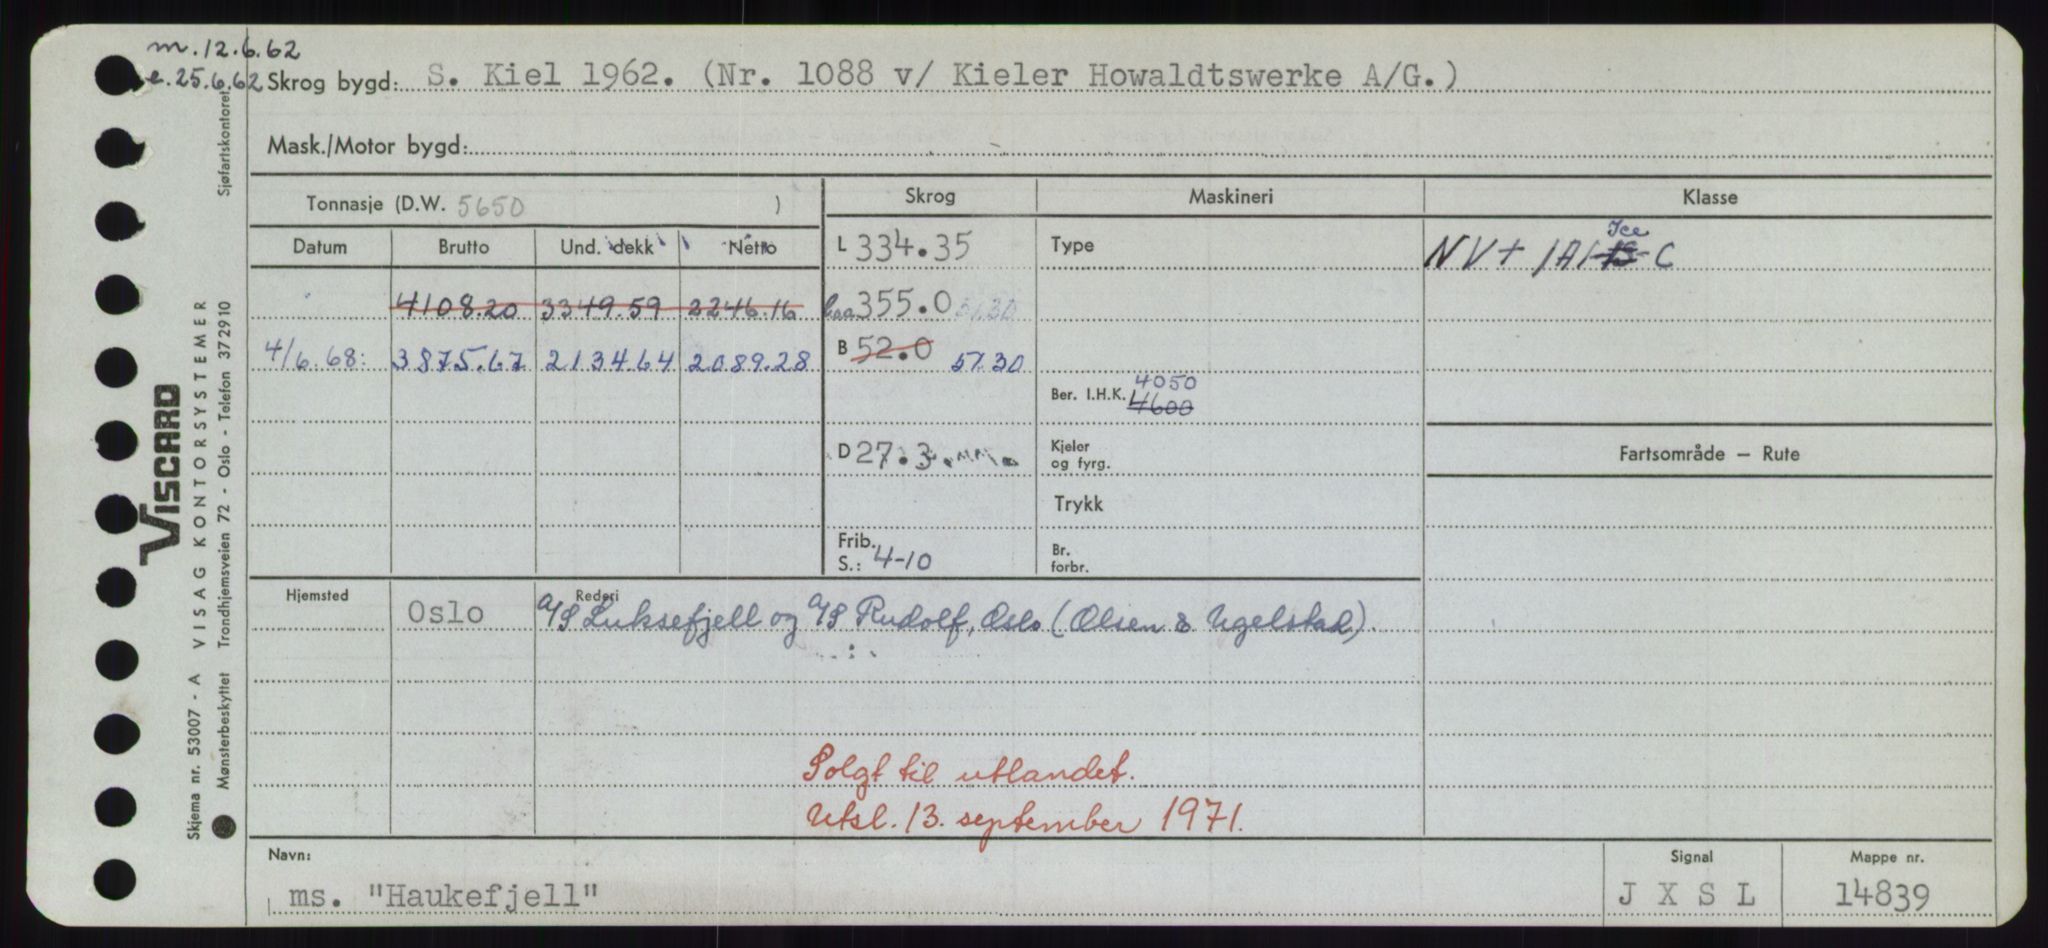 m. 12.6.62
e. 25.6.62 Skrog bygd: S. Kiel 1962. (Nr. 1088 v/ Kieler Howaldtswerke A/G.)
Mask./Motor bygd:
Tonnasje (D.W. 5650 )
Skrog
Maskineri
Klasse
Datum
Brutto
Und. dekk
Netto
L 334.35
Type
NV + 1A1 Ice C
4108.20 3349.59 2246.16
Loa 355.0 51.30
4/6.68: 3875.67 2134.64 2089.28
B 52.0 51.30
Ber. I.H.K. 4050
4600
D 27.3.
Kjeler
og fyrg.
Fartsområde — Rute
Trykk
Frib.
S.: 4-10
Br.
forbr.
Hjemsted
Oslo
Rederi
A/S Luksefjell og A/S Rudolf, Oslo (Olsen & Ugelstad).
Solgt til utlandet.
Utsl. 13. september 1971.
Navn:
ms. "Haukefjell"
Signal
J X S L
Mappe nr.
14839
Skjema nr. 53007 - A VISAG KONTORSYSTEMER
Mønsterbeskyttet Trondhjemsveien 72 - Oslo - Telefon 37 29 10
Sjøfartskontoret
VISCARD